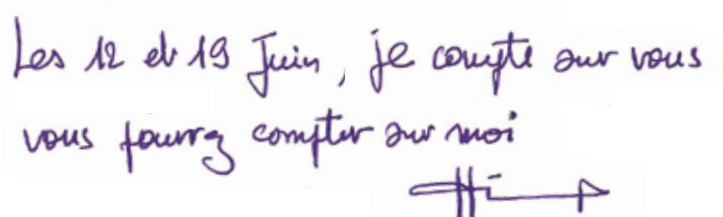 Les 12 et 19 Juin, je compte sur vous
vous pourrez compter sur moi